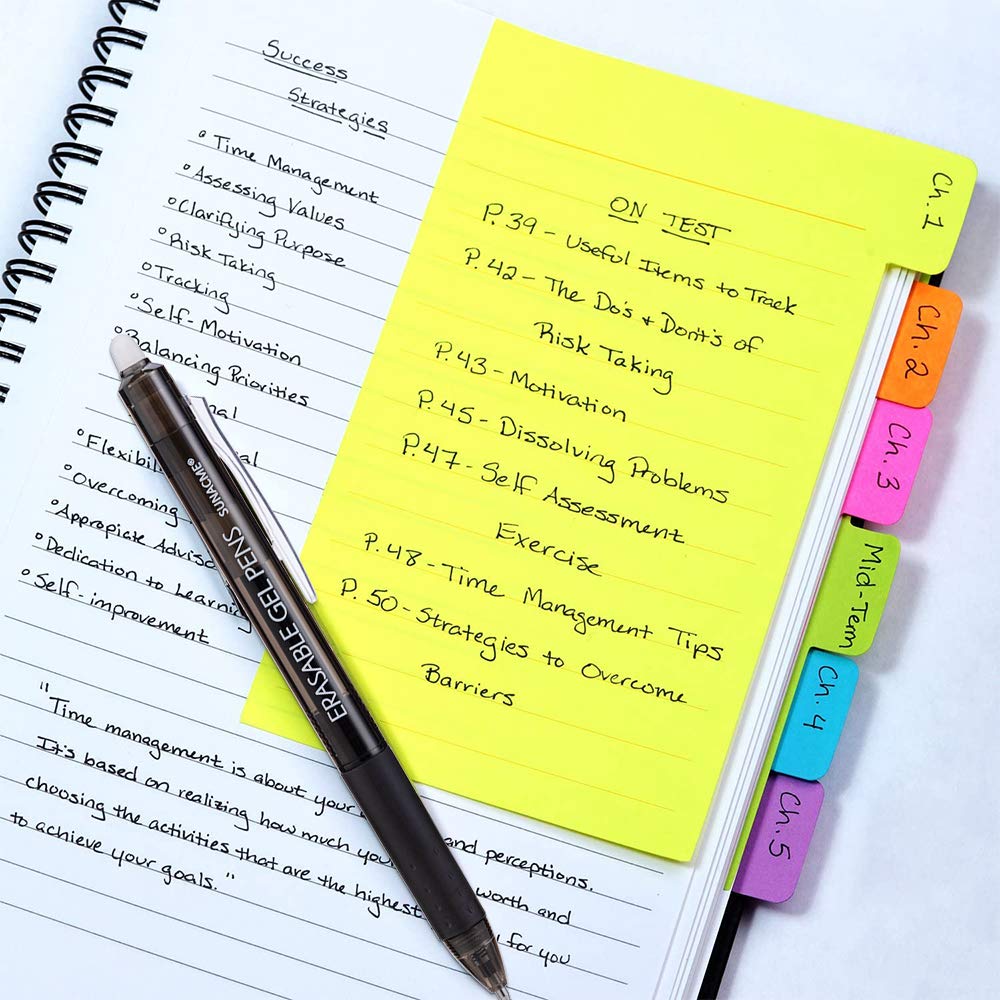 Success
Strategies
° Time Management
° Assessing Values
° Clarifying Purpose
° Risk Taking
° Tracking
° Self-Motivation
° Balancing Priorities
° Flexibil
° Overcoming
° Appropiate Adviso
° Dedication to Learning
° Self-improvement
"Time management is about your and perceptions.
It's based on realizing how much you worth and
choosing the activities that are the highest for you
to achieve your goals."
ERASABLE GEL PENS SUNACME®
ON TEST
P.39 - Useful Items to Track
P.42 - The Do's + Dont's of
Risk Taking
P.43 - Motivation
P.45 - Dissolving Problems
P.47 - Self Assessment
Exercise
P.48 - Time Management Tips
P.50 - Strategies to Overcome
Barriers
Ch. 1
Ch. 2
Ch. 3
Mid-Term
Ch. 4
Ch. 5